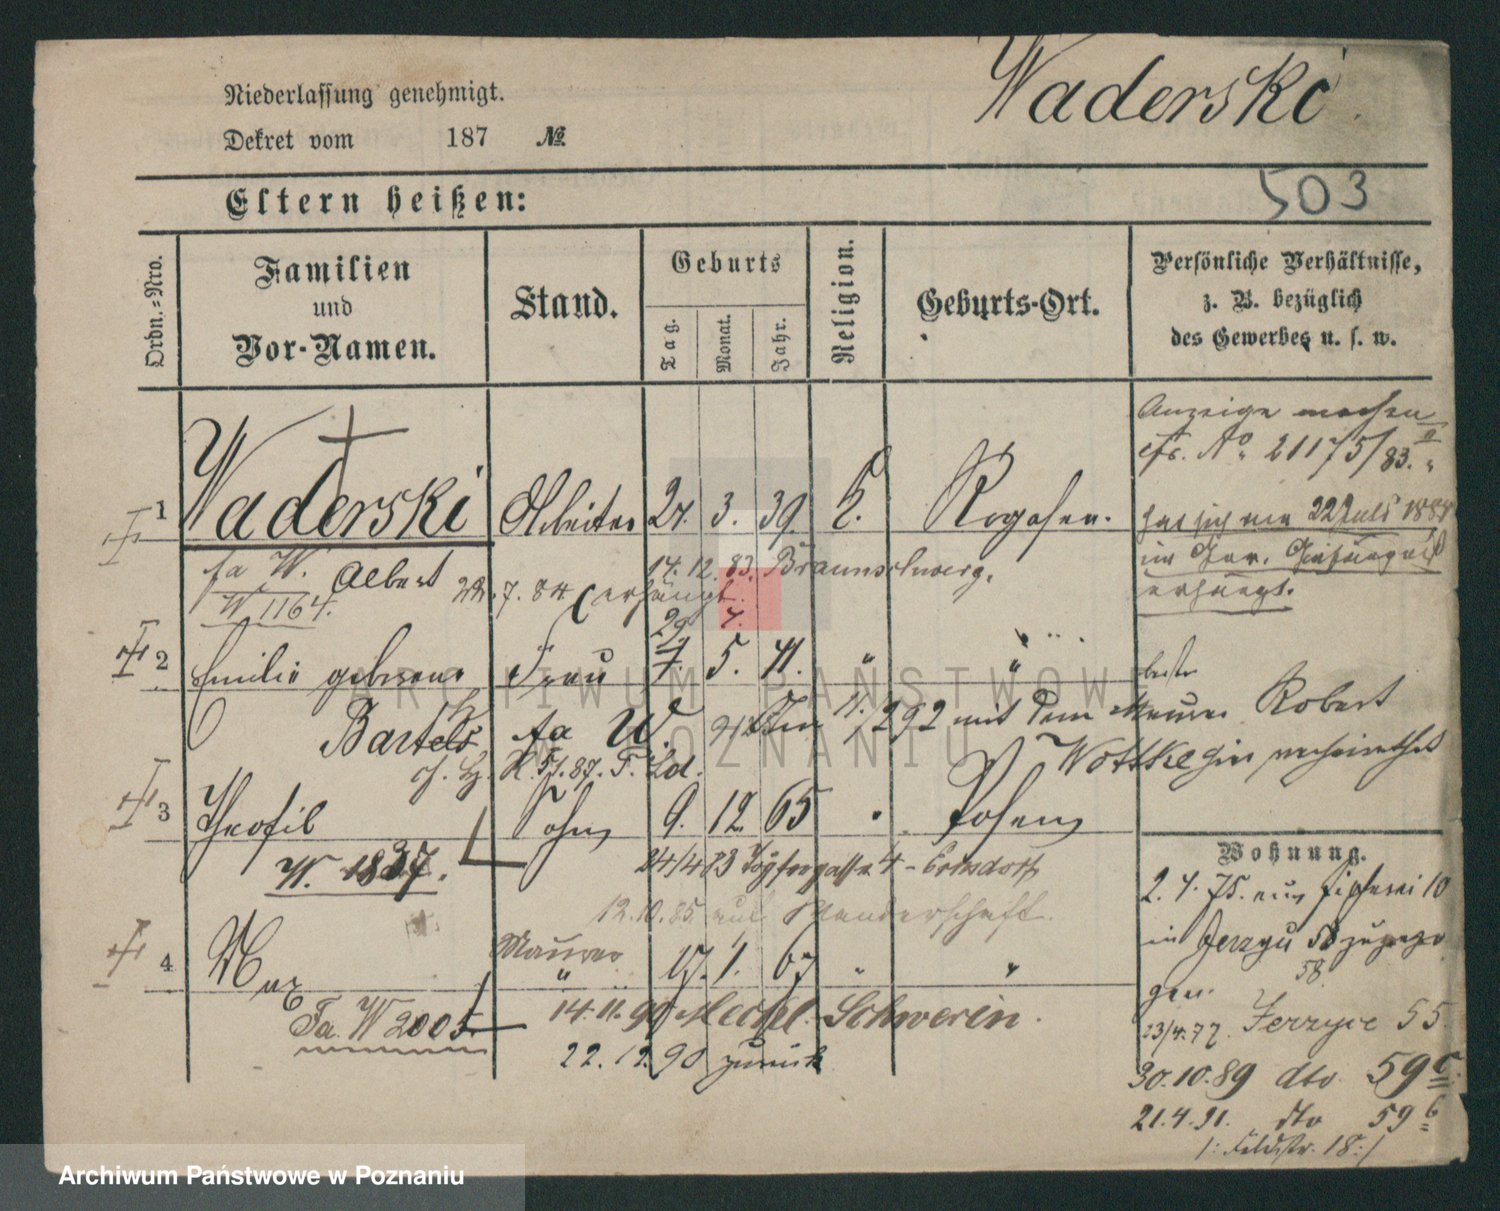 Niederlassung genehmigt.
Waderski
Dekret vom 187 №
Eltern heißen:
503
Ordn.-Nro.
Familien
und
Vor-Namen.
Stand.
Geburts
Tag.
Monat.
Jahr.
Religion.
Geburts-Ort.
Persönliche Verhältnisse,
z. B. bezüglich
des Gewerbes u. s. w.
Anzeige machen
cfr. No. 21175/83.
1 Waderski Arbeiter 27. 3. 39. K. Rogasen.
hat sich am 22 Juli 1884
im Ger. Gefängniß
erhängt.
fa W. Albert
W 1164.
14.12.83. Braunschweig.
22.7.84 erhängt.
29 7.
2 Emilie geborene Frau 7. 5. 41. " "
Bartels fa W.
11./2 92 mit dem Maurer Robert
Wottke verheirathet
5/.87. F. Ld.
3 Theofil Sohn 9. 12. 65 " Posen
W. 1837.
24/4 83 4 -
12.10.85 auf Wanderschaft.
4 Max Maurer
" 17. 1. 67 " "
Fa. W 2005
14.11.90 Meckel. Schwerin.
22.12.90 zurück
Wohnung.
2. 4. 75. aus 10
in Jerzyce 58 zugezo
58
gen.
23/4.77. Jerzyce 55.
30.10.89 dto 59c
21.4.91. dto 59b
/: Feldstr. 18 :/
ARCHIWUM PAŃSTWOWE
W POZNANIU
Archiwum Państwowe w Poznaniu